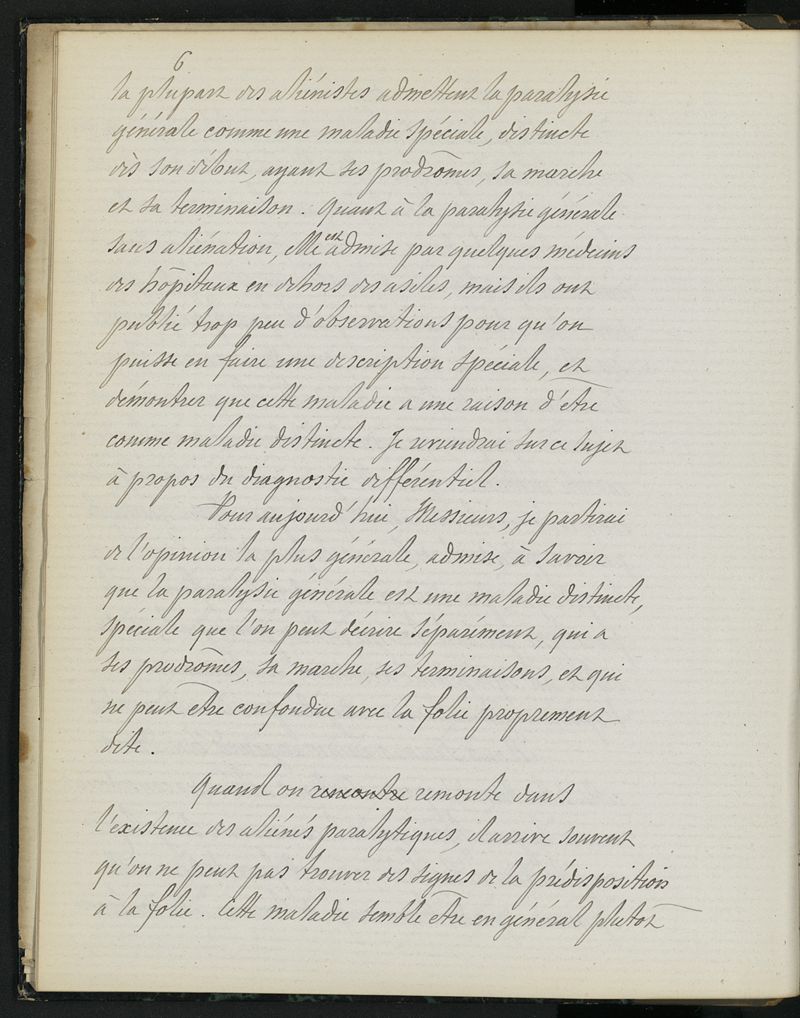 6
la plupart des aliénistes admettent la paralysie
générale comme une maladie spéciale, distincte
dès son début, ayant ses prodrômes, sa marche
et sa terminaison. Quant à la paralysie générale
sans aliénation, elle est admise par quelques médecins
des hôpitaux en dehors des asiles, mais ils ont
publié trop peu d'observations pour qu'on
puisse en faire une description spéciale, et
démontrer que cette maladie a une raison d'être
comme maladie distincte. Je reviendrai sur ce sujet
à propos du diagnostic différentiel.
Pour aujourd'hui, Messieurs, je partirai
de l'opinion la plus générale, admise, à savoir
que la paralysie générale est une maladie distincte,
spéciale que l'on peut décrire séparément, qui a
ses prodrômes, sa marche, ses terminaisons, et qui
ne peut être confondue avec la folie proprement
dite.
Quand on rencontre remonte dans
l'existence des aliénés paralytiques, il arrive souvent
qu'on ne peut pas trouver des signes de la prédisposition
à la folie. Cette maladie semble être en général plutôt